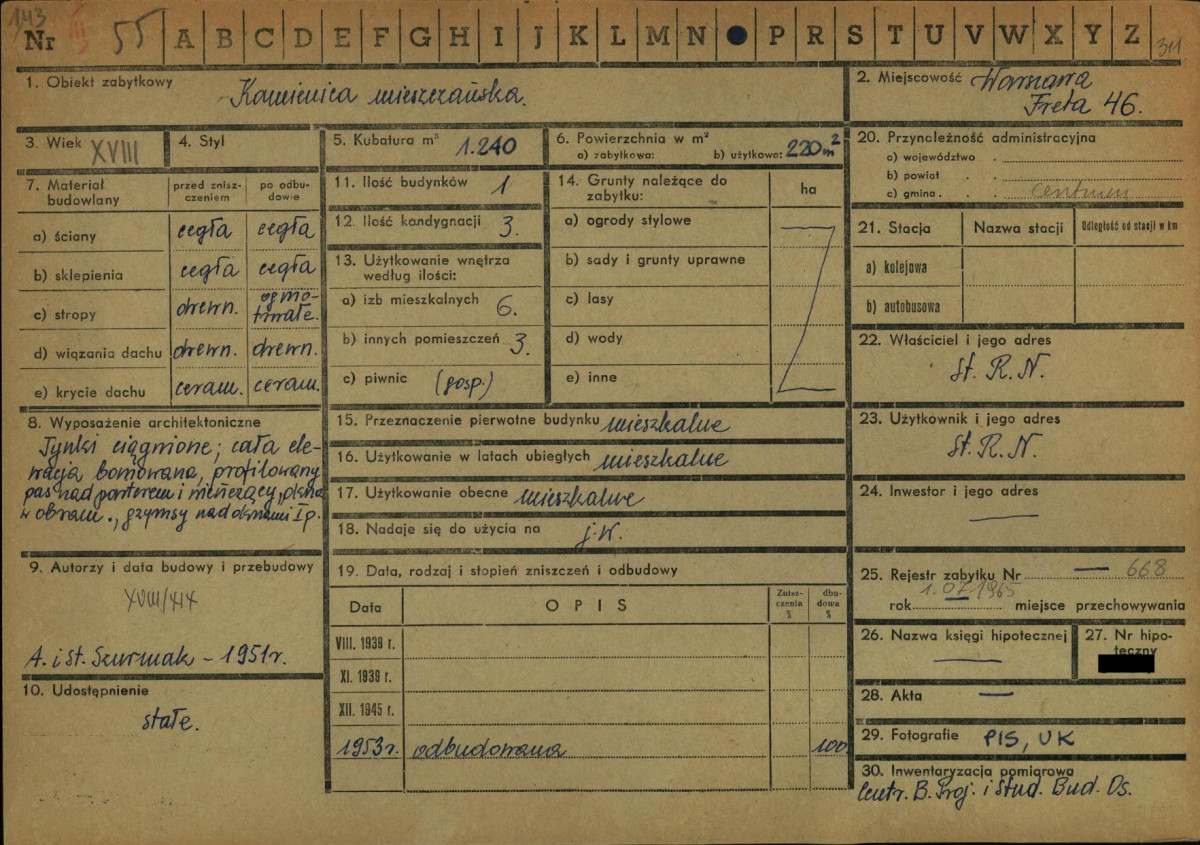 143
Nr III 55 A B C D E F G H I J K L M N P R S T U V W X Y Z 311
1. Obiekt zabytkowy
Kamienica mieszczańska.
2. Miejscowość Warszawa
Freta 46.
3. Wiek XVIII
4. Styl
5. Kubatura m³ 1.240
6. Powierzchnia w m²
a) zabytkowa: b) użytkowa: 220 m²
7. Materiał budowlany
przed zniszczeniem
po odbudowie
a) ściany cegła cegła
b) sklepienia cegła cegła
c) stropy drewn. ogniotrwałe.
d) wiązania dachu drewn. drewn.
e) krycie dachu ceram. ceram.
8. Wyposażenie architektoniczne
Tynki ciągnione; cała ele-
wacja boniowana, profilowany
pas nad parterem i wieńczący, okna
w obram., gzymsy nad oknami I p.
9. Autorzy i data budowy i przebudowy
XVIII/XIX
A. i St. Szurmak – 1951 r.
10. Udostępnienie
stałe.
11. Ilość budynków 1
12. Ilość kondygnacji 3.
13. Użytkowanie wnętrza
według ilości:
a) izb mieszkalnych 6.
b) innych pomieszczeń 3.
c) piwnic (gosp.)
14. Grunty należące do
zabytku: ha
a) ogrody stylowe
b) sady i grunty uprawne
c) lasy
d) wody
e) inne
15. Przeznaczenie pierwotne budynku mieszkalne
16. Użytkowanie w latach ubiegłych mieszkalne
17. Użytkowanie obecne mieszkalne
18. Nadaje się do użycia na j.w.
19. Data, rodzaj i stopień zniszczeń i odbudowy
Data OPIS Zniszczenia % dbudowa %
VIII. 1939 r.
XI. 1939 r.
XII. 1945 r.
1953 r. odbudowana 100
20. Przynależność administracyjna
a) województwo
b) powiat
c) gmina centrum
21. Stacja Nazwa stacji Odległość od stacji w km
a) kolejowa
b) autobusowa
22. Właściciel i jego adres
St. R. N.
23. Użytkownik i jego adres
St. R. N.
24. Inwestor i jego adres
—
25. Rejestr zabytku Nr — 668
rok 1.07.1965 miejsce przechowywania
26. Nazwa księgi hipotecznej
—
27. Nr hipo-
teczny
28. Akta —
29. Fotografie PIS, UK
30. Inwentaryzacja pomiarowa
Centr. B. Proj. i Stud. Bud. Os.